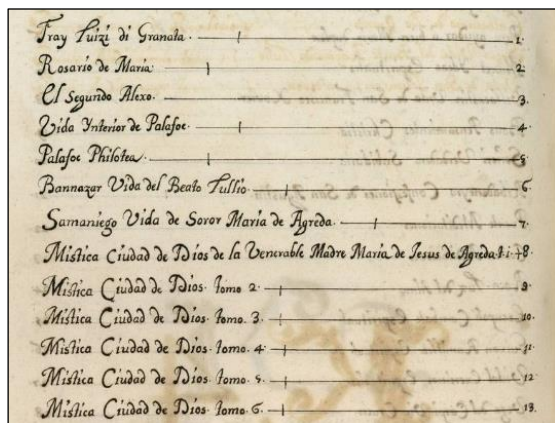 Fray Luizi di Granata. 1.
Rosario de Maria 2
El Segundo Alexo. 3.
Vida Interior de Palafoc. 4
Palafoc Philotea. 5
Bannazar Vida del Beato Tullio. 6
Samaniego Vida de Soror Maria de Agreda. 7
Mistica Ciudad de Dios de la Venerable Madre Maria de Jesus de Agreda. t. i. 8
Mistica Ciudad de Dios. tomo 2. 9
Mistica Ciudad de Dios. tomo. 3. 10.
Mistica Ciudad de Dios. tomo. 4. 11
Mistica Ciudad de Dios. tomo. 5. 12
Mistica Ciudad de Dios. tomo. 6. 13.